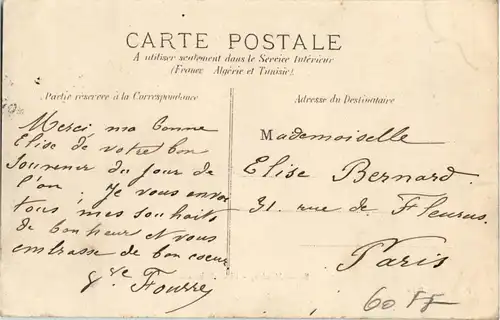 CARTE POSTALE
A utiliser seulement dans le Service Intérieur
(France, Algérie et Tunisie)
Partie réservée à la Correspondance
Adresse du Destinataire
Merci, ma bonne
Elise de votre bon
souvenir du jour de
l'an. Je vous envoie
tous mes souhaits
de bonheur et vous
embrasse de bon coeur
Fourre
Mademoiselle
Elise Bernard.
31. rue de Fleurus.
Paris
60